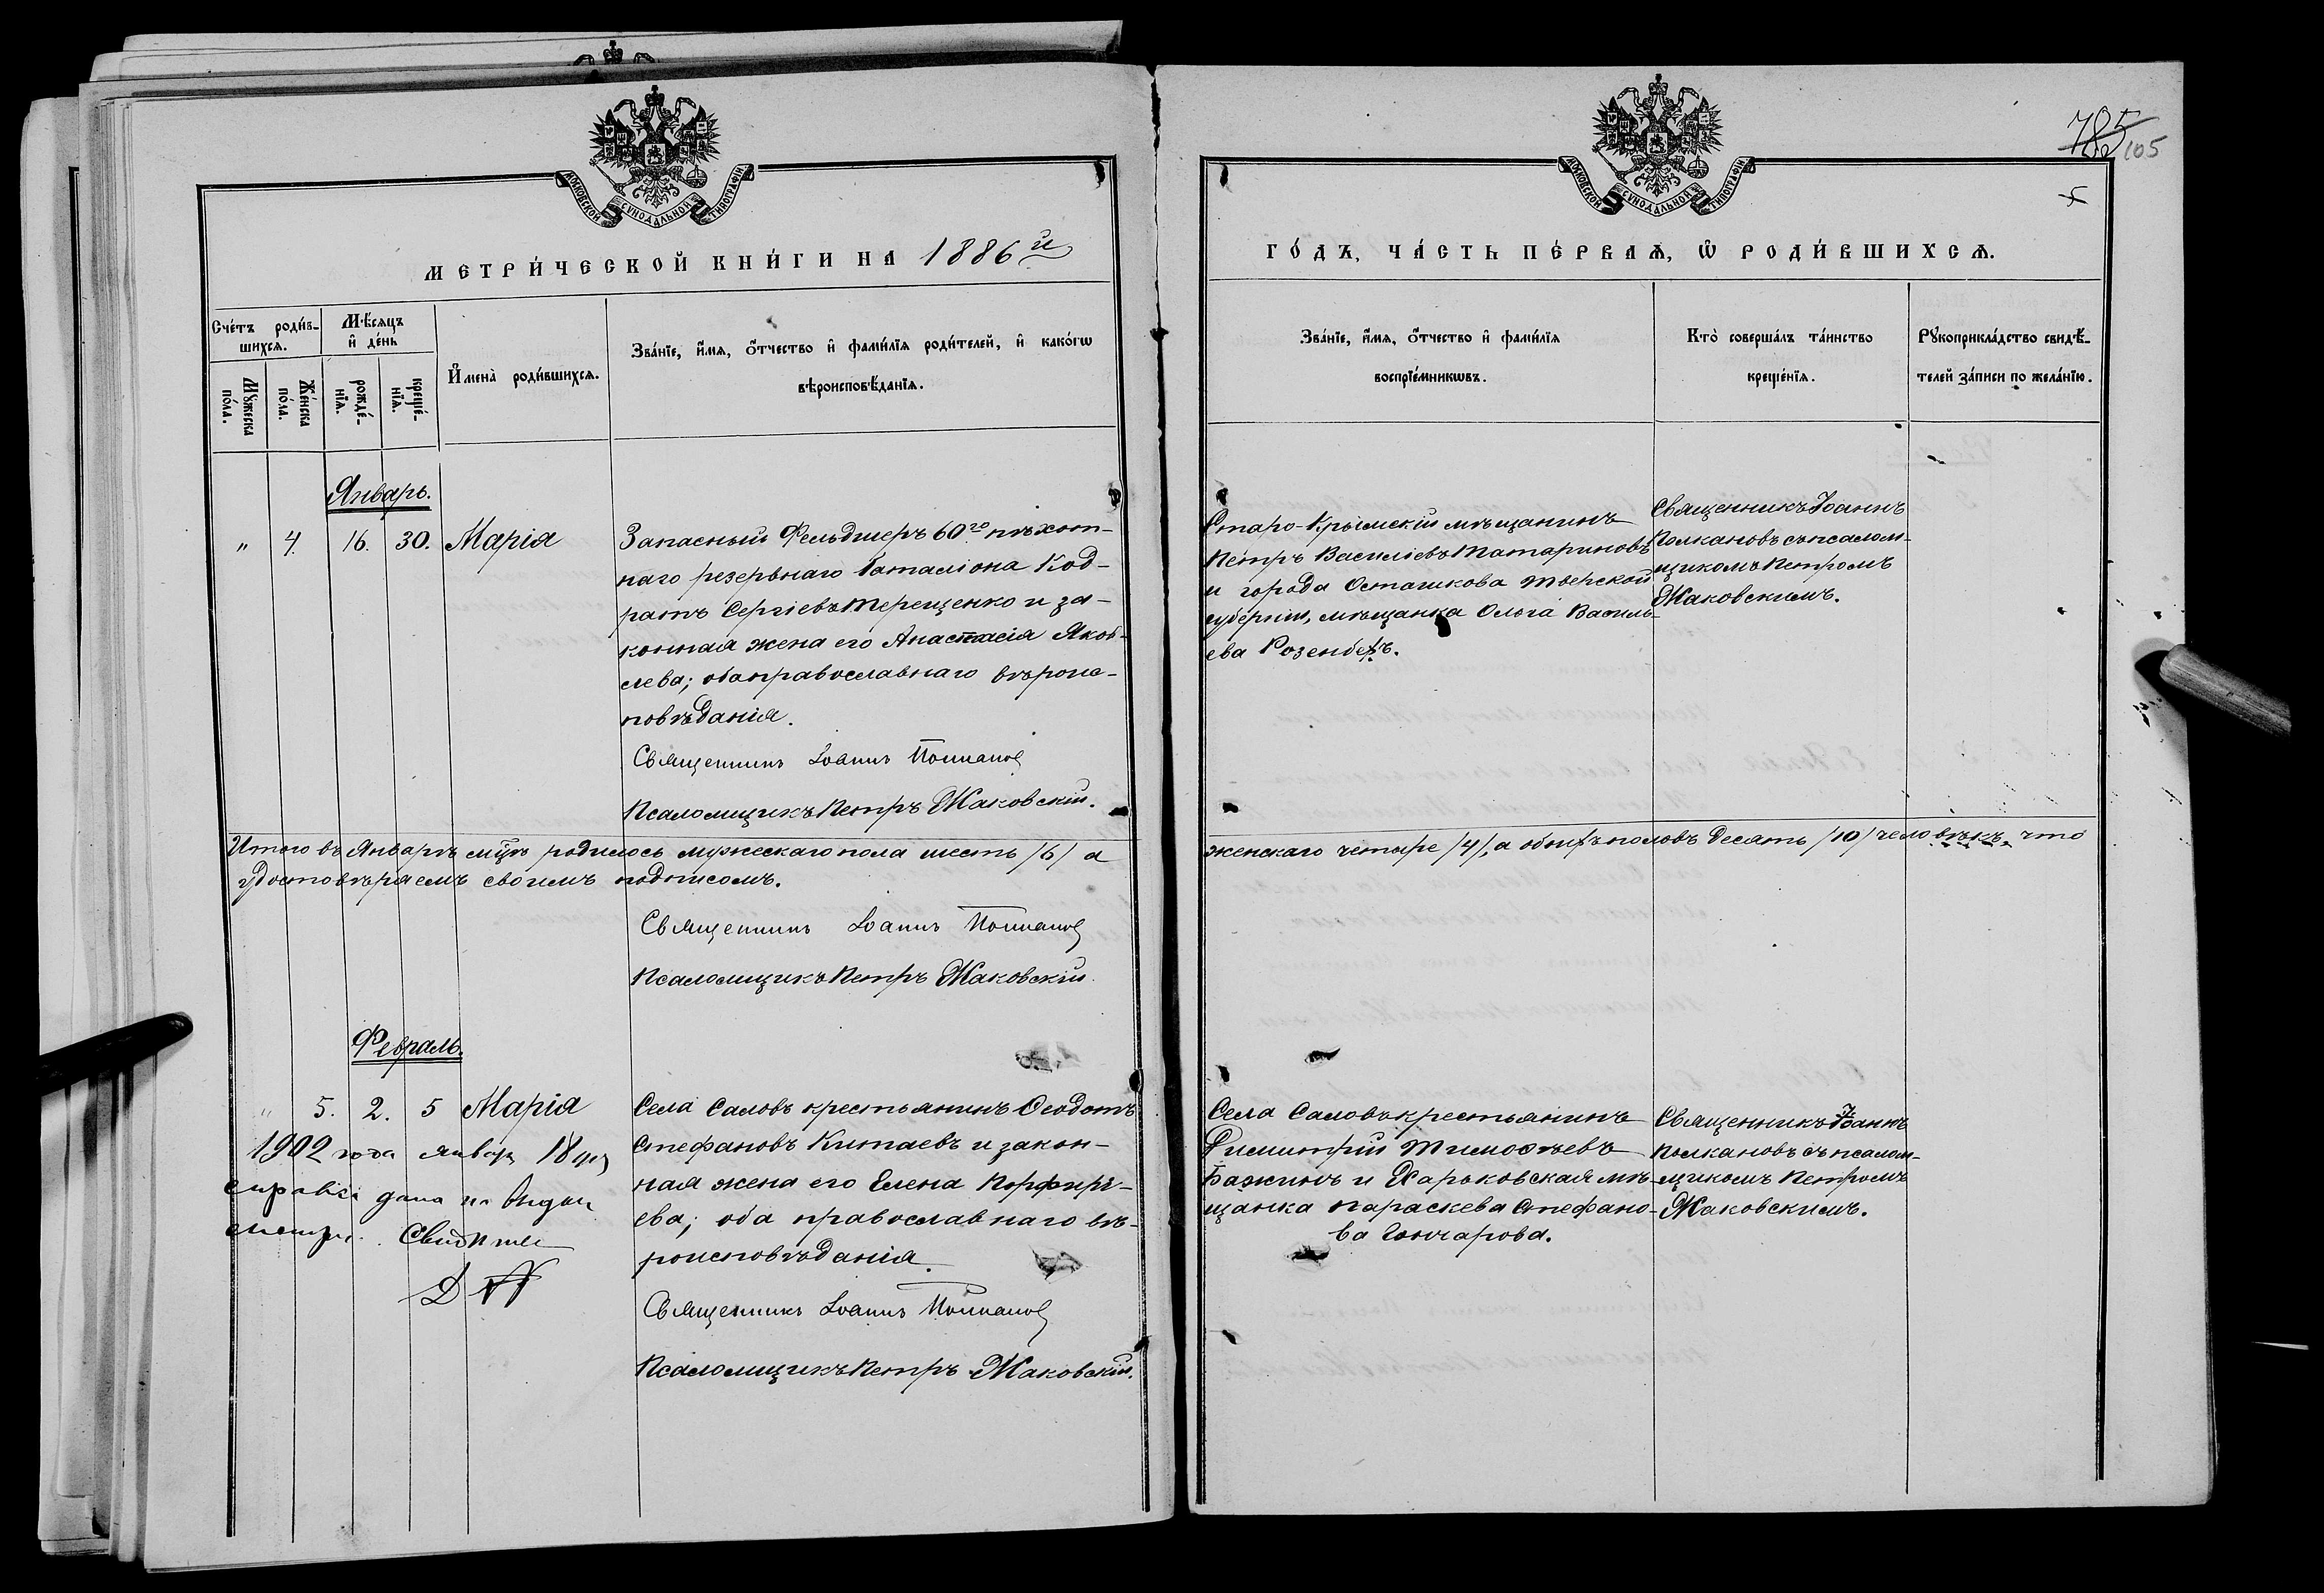 МОСКОВСКОЙ СѴНОДАЛЬНОЙ ТИПОГРАФІИ
МЕТРИ́ЧЕСКОЙ КНИ́ГИ НА 1886й
Сче́тъ роди́в-
шихсѧ.
Мꙋ́жеска
по́ла.
Же́нска
по́ла.
Мѣ́сѧцъ
и҆ де́нь
рожде́-
нїѧ.
креще́-
нїѧ.
И҆мена̀ роди́вшихсѧ.
Зва́нїе, и҆́мѧ, ѻ҆́тчество и҆ фами́лїѧ роди́телей, и҆ како́гѡ
вѣроисповѣ́данїѧ.
Январь.
" 4. 16. 30. Марія
Запасный Фельдшеръ 60го пѣхот-
наго резервнаго баталіона Код-
ратъ Сергіевъ Терещенко и за-
конная жена его Анастасія Яков-
лева; оба православнаго вѣроис-
повѣданія.
Священникъ Іоаннъ Полканов
Псаломщикъ Петръ Маковскій.
Итого въ Январѣ мцѣ родилось мужескаго пола шесть /6/ а
удостовѣряемъ своимъ подписомъ.
Священникъ Іоаннъ Полканов
Псаломщикъ Петръ Маковскій.
Февраль.
" 5. 2. 5 Марія
Села Саловъ крестьянинъ Ѳеодотъ
Стефановъ Китаевъ и закон-
ная жена его Елена Порфирі-
ева; оба православнаго вѣ-
роисповѣданія.
Священникъ Іоаннъ Полканов
Псаломщикъ Петръ Маковскій.
1902 года январ 18 дня
справка дана на выдач
метри. Свидѣтел
785 105
МОСКОВСКОЙ СѴНОДАЛЬНОЙ ТИПОГРАФІИ
ГО́ДЪ, ЧА́СТЬ ПЕ́РВАѦ, Ѽ РОДИ́ВШИХСѦ.
Зва́нїе, и҆́мѧ, ѻ҆́тчество и҆ фами́лїѧ
воспрїе́мникѡвъ.
Кто̀ соверша́лъ та́инство
креще́нїѧ.
Рꙋкоприкла́дство свидѣ́-
телей за́писи по жела́нїю.
Старо-Крымскій мѣщанинъ
Петръ Василіевъ Татариновъ
и города Осташкова Тверской
губерніи, мѣщанка Ольга Василь-
ева Розенбергъ.
Священникъ Іоаннъ
Полкановъ съ псалом-
щикомъ Петромъ
Маковскимъ.
женскаго четыре /4/, а обоихъ половъ десять /10/ человѣкъ, что
Села Саловъ крестьянинъ
Димитрій Тимоѳѣевъ
Бажинъ и Харьковская мѣ-
щанка Параскева Стефано-
ва Гончарова.
Священникъ Іоаннъ
Полкановъ съ псалом-
щикомъ Петромъ
Маковскимъ.